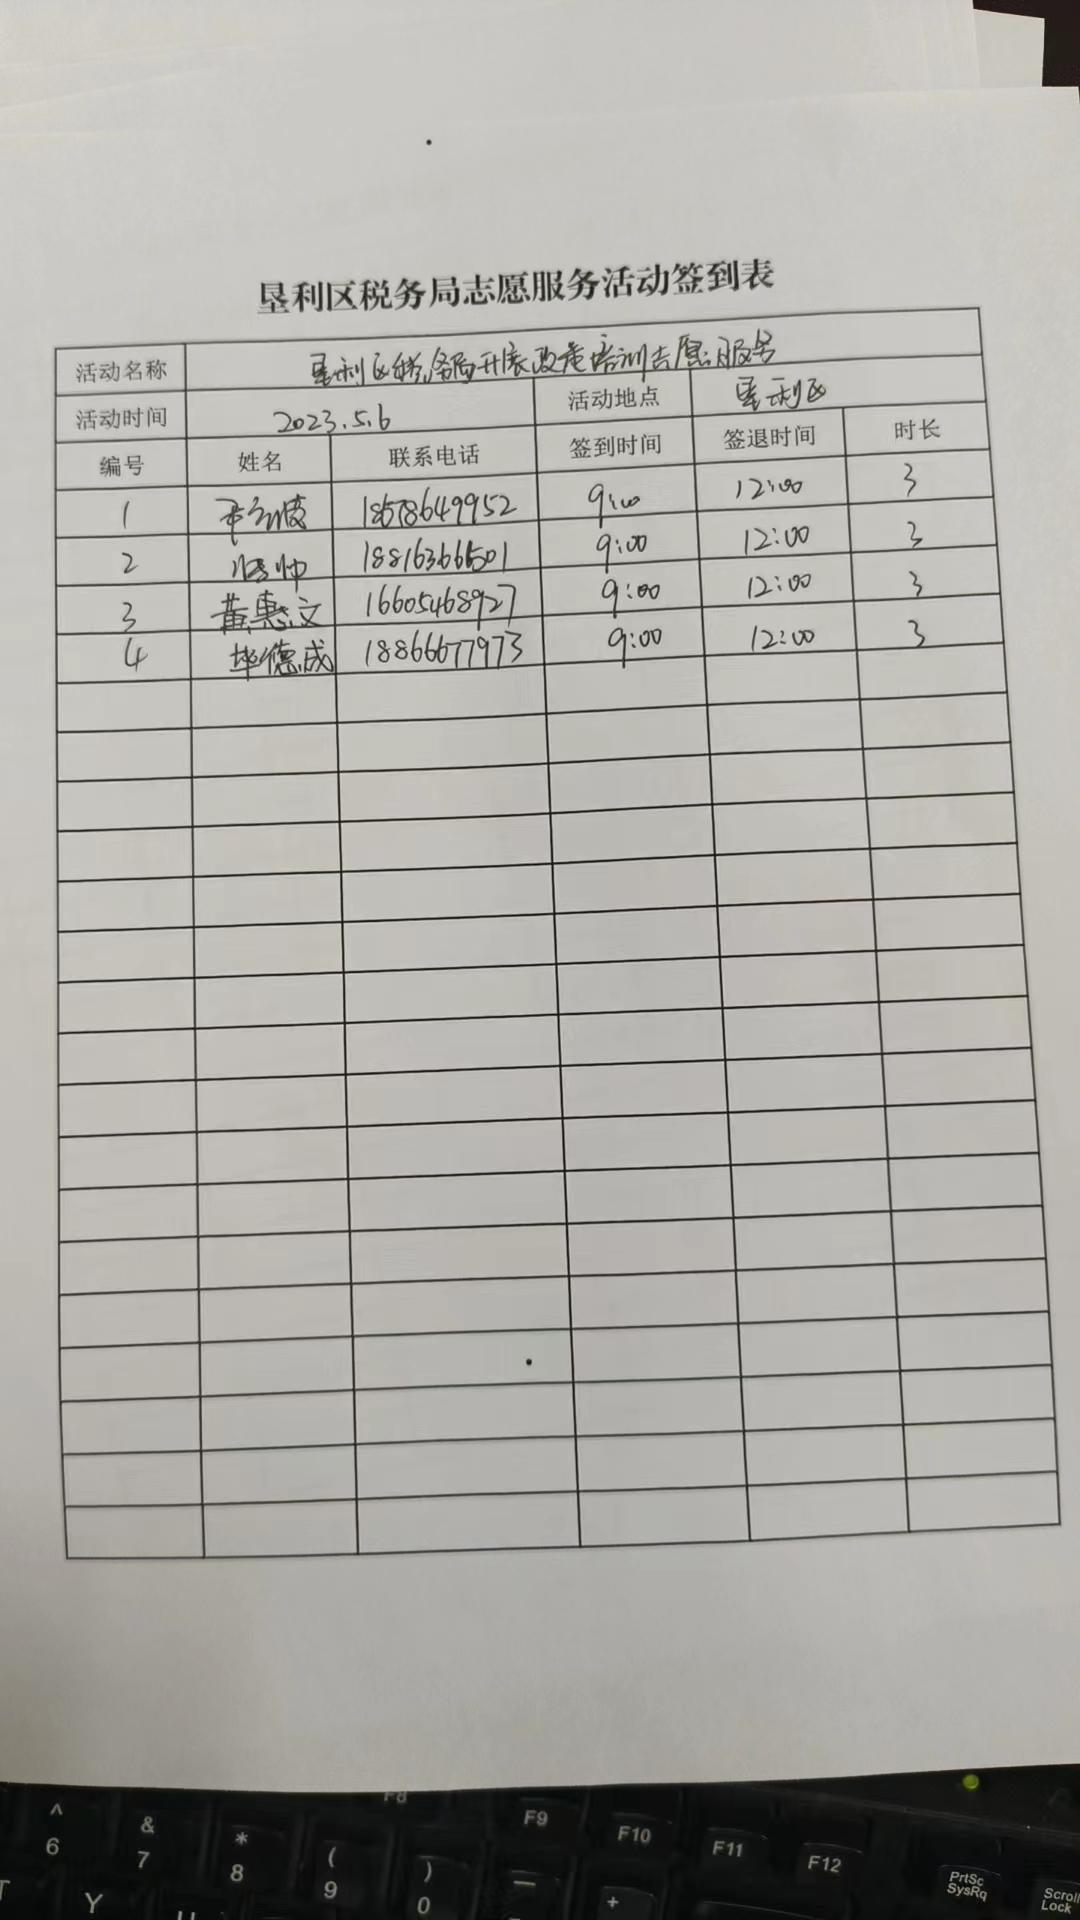 垦利区税务局志愿服务活动签到表
活动名称 垦利区税务局开展政策培训志愿服务
活动时间 2023.5.6 活动地点 垦利区
编号 姓名 联系电话 签到时间 签退时间 时长
1 9:00 12:00 3
2 9:00 12:00 3
3 黄惠文 16605468927 9:00 12:00 3
4 毕德成 18866677973 9:00 12:00 3
F8 F9 F10 F11 F12 PrtSc SysRq Scroll Lock
^ 6 & 7 * 8 ( 9 ) 0 — +
T Y U